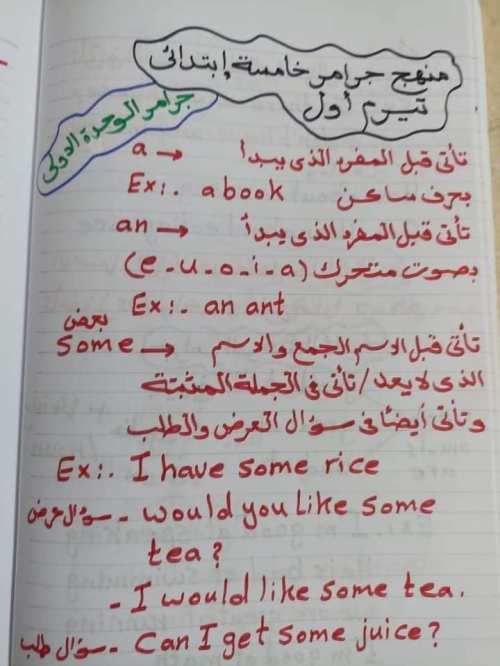 منهج جرامر خامسة إبتدائى
تيرم أول
جرامر الوحدة الاولى
a → تأتى قبل المفرد الذى يبدأ
بحرف ساكن Ex:. a book
an → تأتى قبل المفرد الذى يبدأ
بصوت متحرك (e-u-o-i-a)
Ex:. an ant
بعض
some → تأتى قبل الاسم الجمع والاسم
الذى لا يعد / تأتى فى الجملة المثبتة
وتأتى أيضاً فى سؤال العرض والطلب
Ex:. I have some rice
سؤال عرض - would you like some
tea?
- I would like some tea.
سؤال طلب - Can I get some juice?